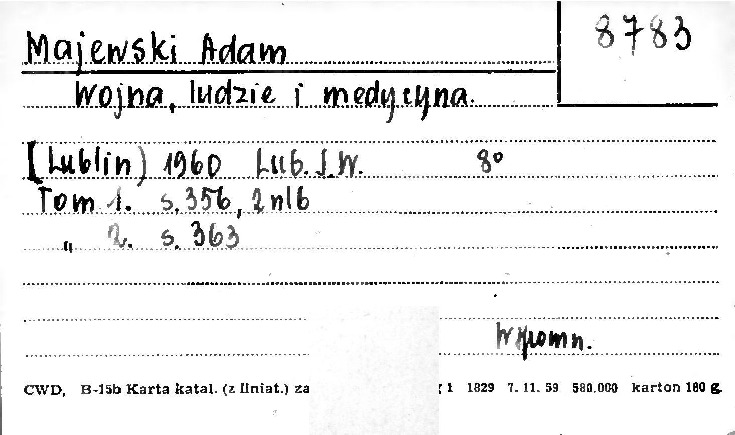 8783
Majewski Adam
Wojna, ludzie i medycyna.
[Lublin) 1960 Lub. S.W. 8°
Tom 1. s. 356, 2 nlb
„ 2. s. 363
Wspomn.
CWD, B-15b Karta katal. (z liniat.) za 1 1829 7. 11. 59 580.000 karton 180 g.